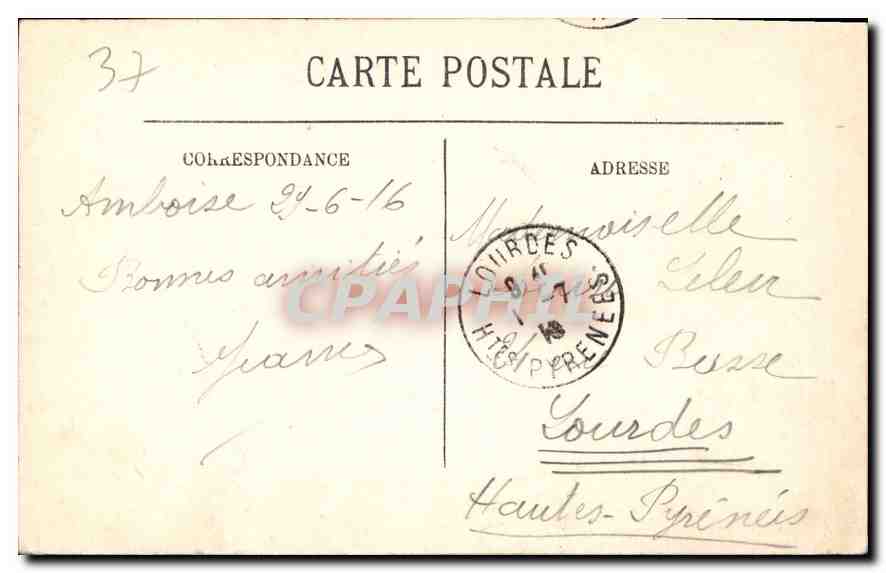 37
CARTE POSTALE
CORRESPONDANCE
Amboise 29-6-16
Bonnes amitiés
ADRESSE
Mademoiselle
Basse
Lourdes
Hautes-Pyrénées
LOURDES
Htes PYRENEES
CPAPHIL